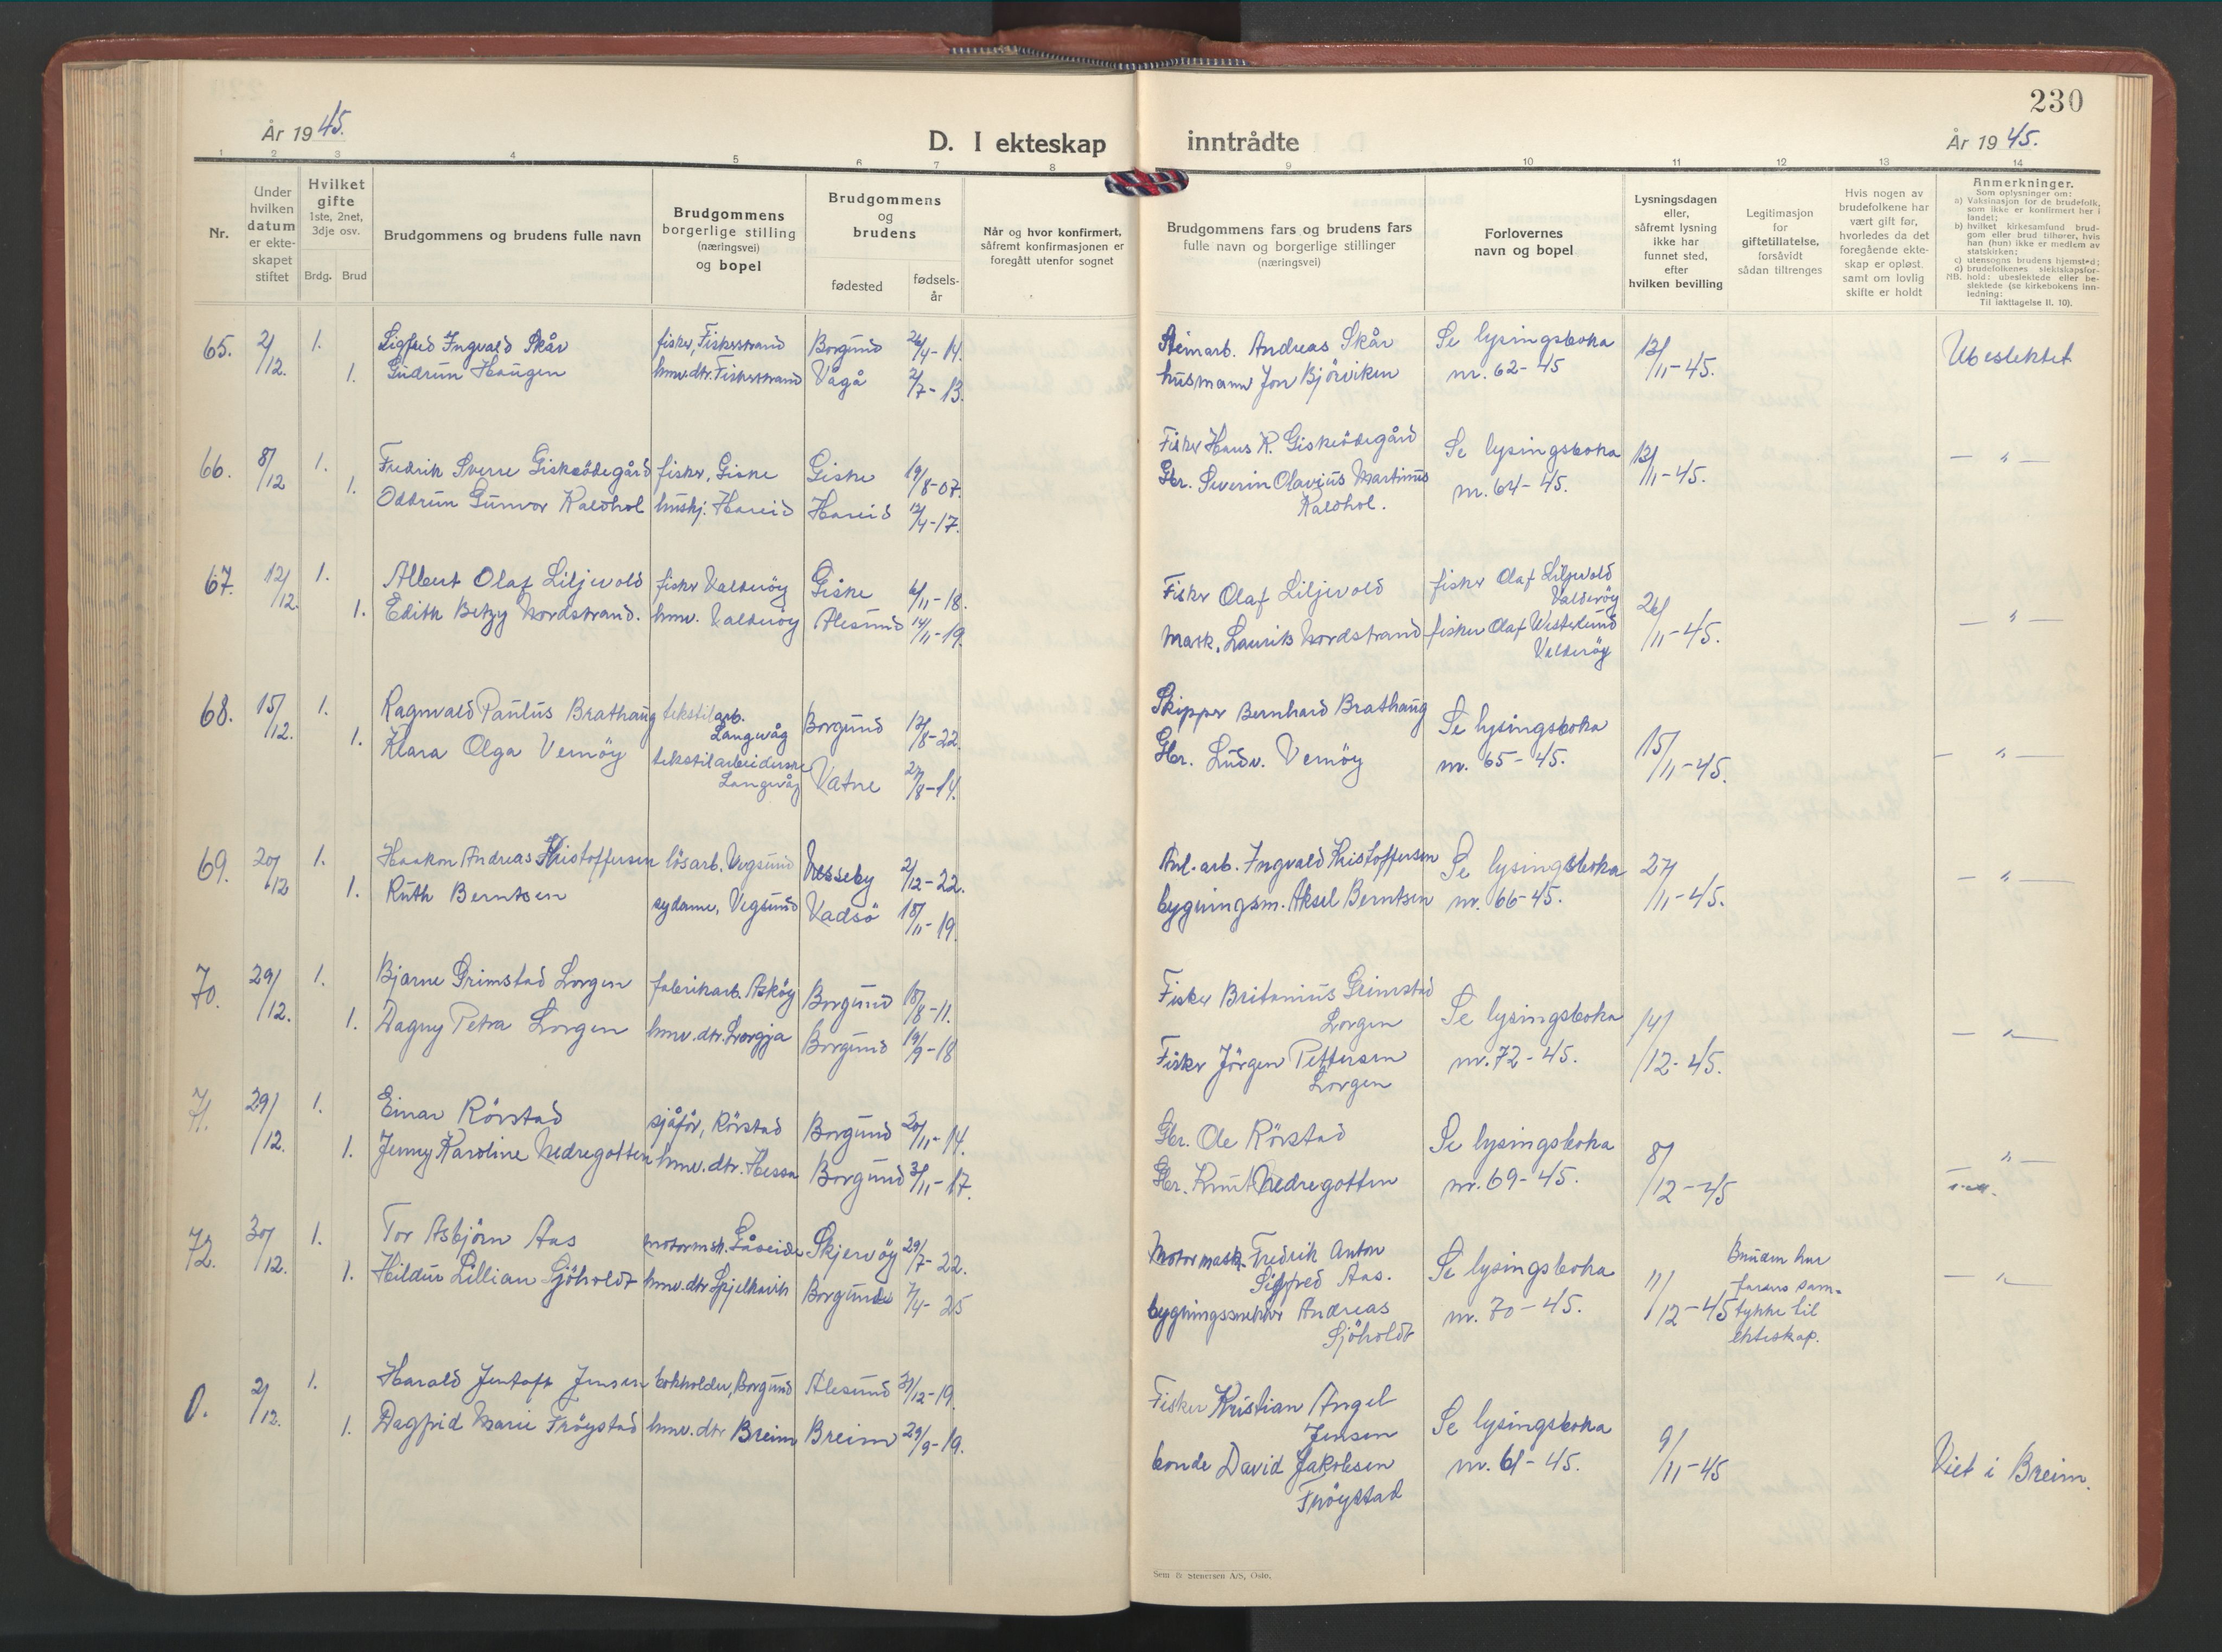 230
År 1945.
D. I ekteskap inntrådte
År 1945.
1 2 3 4 5 6 7 8 9 10 11 12 13 14
Nr.
Under hvilken datum er ekteskapet stiftet
Hvilket gifte
1ste, 2net, 3dje osv.
Brdg. Brud
Brudgommens og brudens fulle navn
Brudgommens borgerlige stilling (næringsvei) og bopel
Brudgommens og brudens
fødested
fødselsår
Når og hvor konfirmert, såfremt konfirmasjonen er foregått utenfor sognet
Brudgommens fars og brudens fars fulle navn og borgerlige stillinger (næringsvei)
Forlovernes navn og bopel
Lysningsdagen eller, såfremt lysning ikke har funnet sted, efter hvilken bevilling
Legitimasjon for giftetillatelse, forsåvidt sådan tiltrenges
Hvis nogen av brudefolkene har vært gift før, hvorledes da det foregående ekteskap er opløst, samt om lovlig skifte er holdt
Anmerkninger.
Som oplysninger om:
a) Vaksinasjon for de brudefolk, som ikke er konfirmert her i landet;
b) hvilket kirkesamfund brudgom eller brud tilhører, hvis han (hun) ikke er medlem av statskirken;
c) utensogns brudens hjemsted;
d) brudefolkenes slektskapsforhold: ubeslektede eller beslektede (se kirkebokens innledning:
NB. Til iakttagelse II. 10).
65. 2/12. 1. Sigfred Ingvald Skår fisker, Fiskerstrand Borgund 26/4-14. Steinarb. Andreas Skår Se lysingsboka 13/11-45. Ubeslektet
1. Gudrun Haugen hmv.dtr. Fiskerstrand Vågå 2/7-13. husmann Jon Bjørviken nr. 62-45
66. 8/12 1. Fredrik Sverre Giskeødegård fisker, Giske Giske 19/8-07. Fisker Hans K. Giskeødegård Se lysingsboka 13/11-45. — " —
1. Oddrun Gunvor Kaldhol hushj. Hareid Hareid 12/4-17. Gbr. Severin Olavius Martinus Kaldhol. nr. 64-45.
67. 12/12. 1. Albert Olaf Liljevold fisker Valderøy Giske 6/11-18. Fisker Olaf Liljevold fisker Olaf Liljevold Valderøy 26/11-45. — " —
1. Edith Betzy Nordstrand. hmv. Valderøy Ålesund 14/11-19. Mask. Laurits Nordstrand fisker Olaf Westerlund Valderøy
68. 15/12. 1. Ragnvald Paulus Brathaug tekstilarb. Langevåg Borgund 12/8-22. Skipper Bernhard Brathaug Se lysingsboka 15/11-45. — " —
1. Klara Olga Vernøy tekstilarbeiderske Langevåg Vatne 27/8-14. Gbr. Ludv. Vernøy nr. 65-45.
69. 20/12 1. Haakon Andreas Kristoffersen løsarb. Vegsund Nesseby 2/12-22. Anl.arb. Ingvald Kristoffersen Se lysingsboka 27/11-45. — " —
1. Ruth Berntsen sydame, Vegsund Vadsø 18/11-19. bygningsm. Aksel Berntsen nr. 66-45.
70. 29/12. 1. Bjarne Grimstad Lorgen fabrikarb. Askøy Borgund 18/8-11. Fisker Britanius Grimstad Lorgen Se lysingsboka 14/12-45. — " —
1. Dagny Petra Lorgen hmv.dtr. Lorgja Borgund 19/9-18 Fisker Jørgen Pettersen Lorgen nr. 72-45.
71. 29/12. 1. Einar Rørstad sjåfør, Rørstad Borgund 20/11-14. Gbr. Ole Rørstad Se lysingsboka 8/12-45 — " —
1. Jenny Karoline Nedregotten hmv.dtr. Hessa Borgund 3/11-17. Gbr. Knut Nedregotten nr. 69-45.
72. 30/12. 1. Tor Asbjørn Aas motormsk. Gåseide Skjervøy 29/7-22. Motormask. Fredrik Anton Sigfred Aas. Se lysingsboka 11/12-45 Bruden har farens samtykke til ekteskap. — " —
1. Hildur Lillian Sjøholdt hmv.dtr Spjelkavik Borgund 7/4-25 bygningssnekker Andreas Sjøholdt nr. 70-45.
0. 2/12. 1. Harald Jentoft Jensen bokholder, Borgund Ålesund 31/12-19. Fisker Kristian Angel Jensen Se lysingsboka 9/11-45 Viet i Breim.
1. Dagfrid Marie Frøystad hmv.dtr Breim Breim 29/9-19. bonde David Jakobsen Frøystad nr. 61-45.
Sem & Stenersen A/S, Oslo.